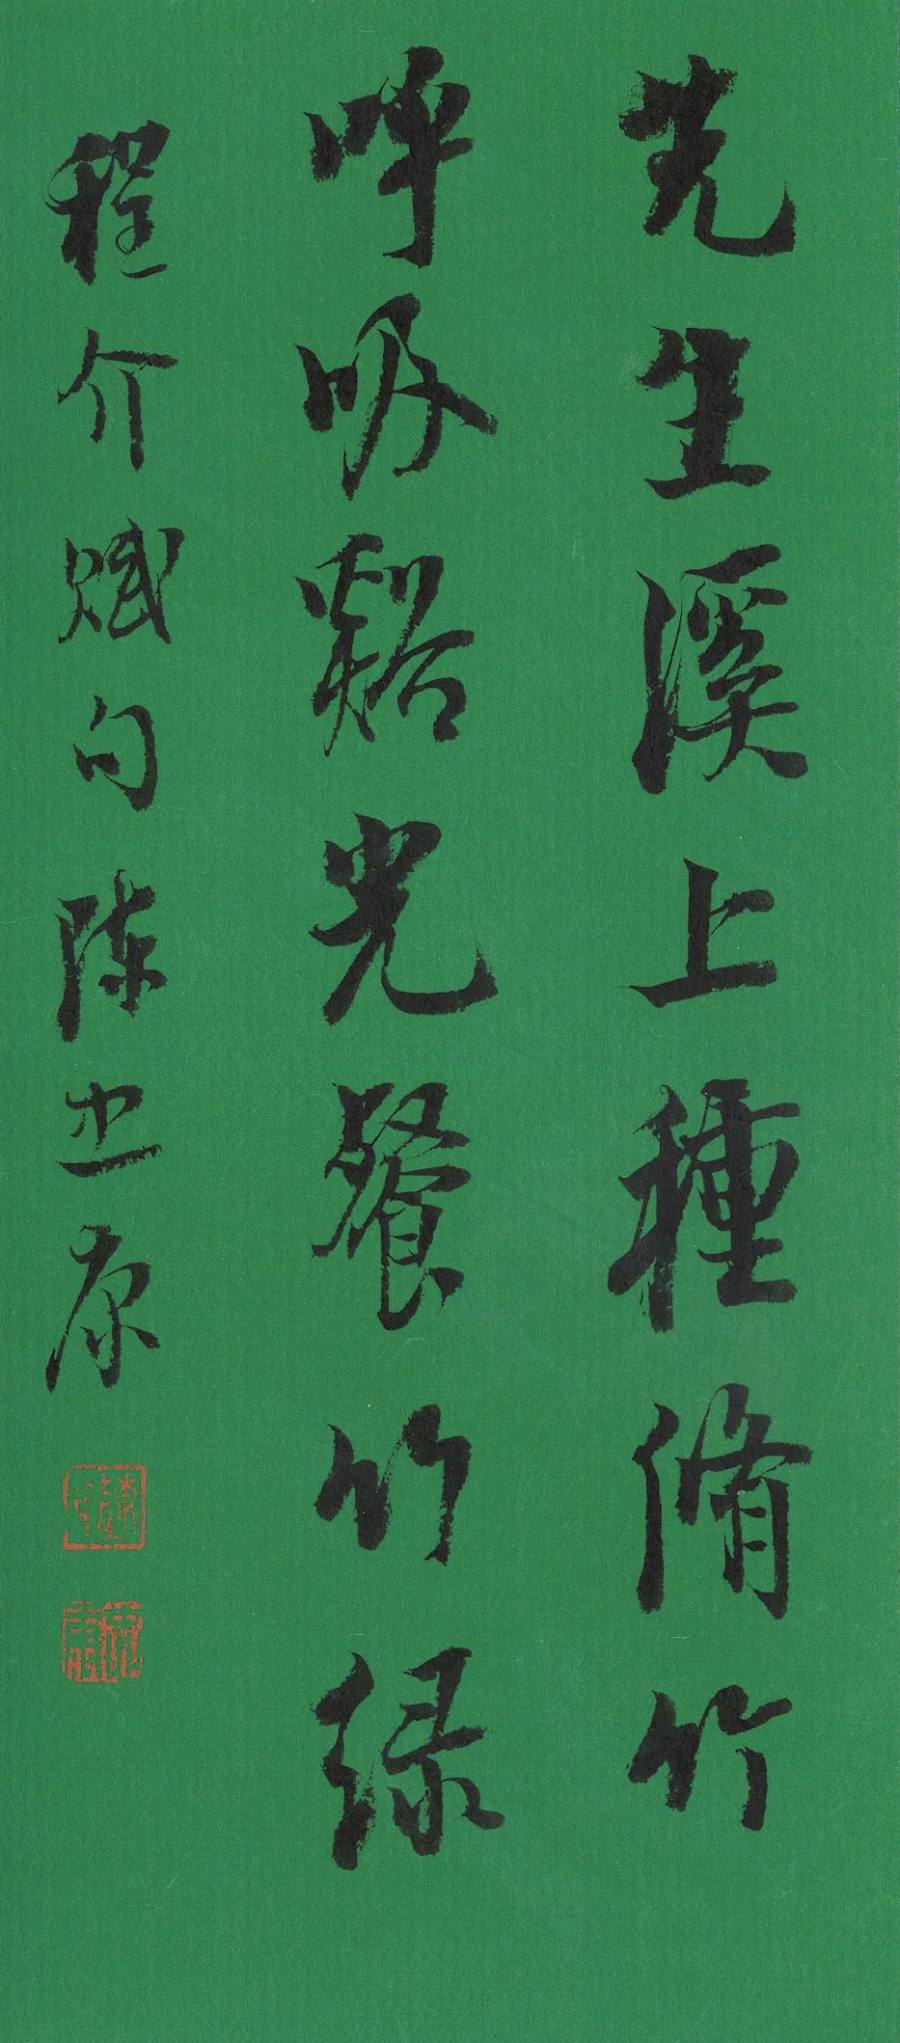 先生溪上種脩竹
呼吸谿光餐竹綠
程介賦句陳志康